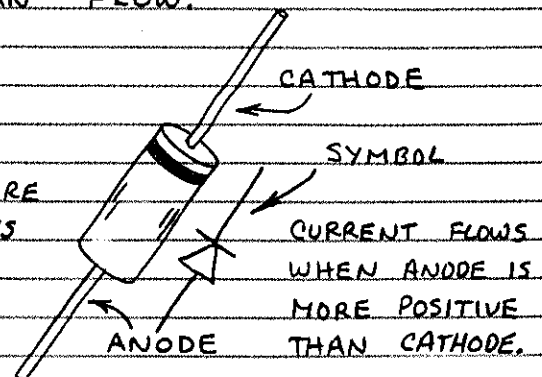 FLOW.
CATHODE
SYMBOL
CURRENT FLOWS
WHEN ANODE IS
MORE POSITIVE
THAN CATHODE.
ANODE